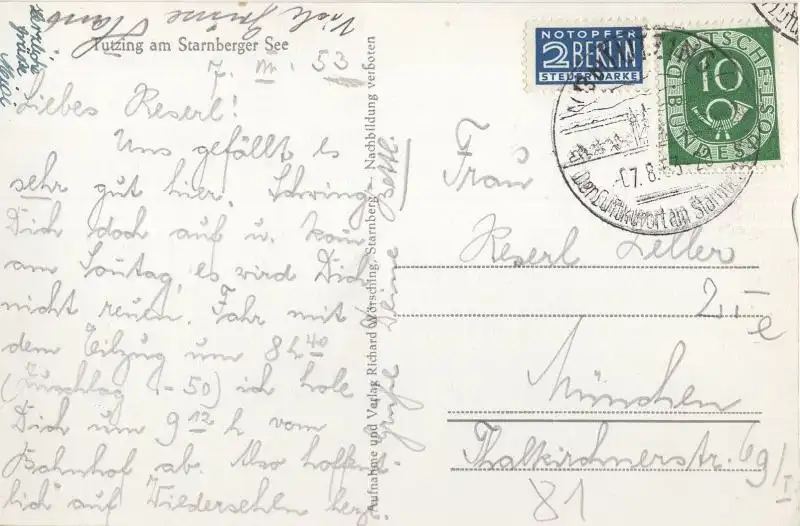 Tutzing am Starnberger See
7. III. 53
Liebes Reserl!
Uns gefällt es
sehr gut hier. Schwing
Dich doch auf u. kom
am Sontag, es wird Dich
nicht reuen. Fahr mit
dem Eilzug um 8 h 40
(Zuschlag -50) ich hole
Dich um 9 12 h vom
Bahnhof ab. Also hoffent-
lich auf Wiedersehen herzl.
Grüße
Deine
Viele Grüsse
herzliche
Grüße
Aufnahme und Verlag Richard Wörsching, Starnberg — Nachbildung verboten
NOTOPFER
2 BERLIN
STEUERMARKE
DEUTSCHE POST
10
BUNDESPOST
Der Luftkurort am Starnb
Frau
Reserl Zeller
München
Thalkirchnerstr. 69/I
81